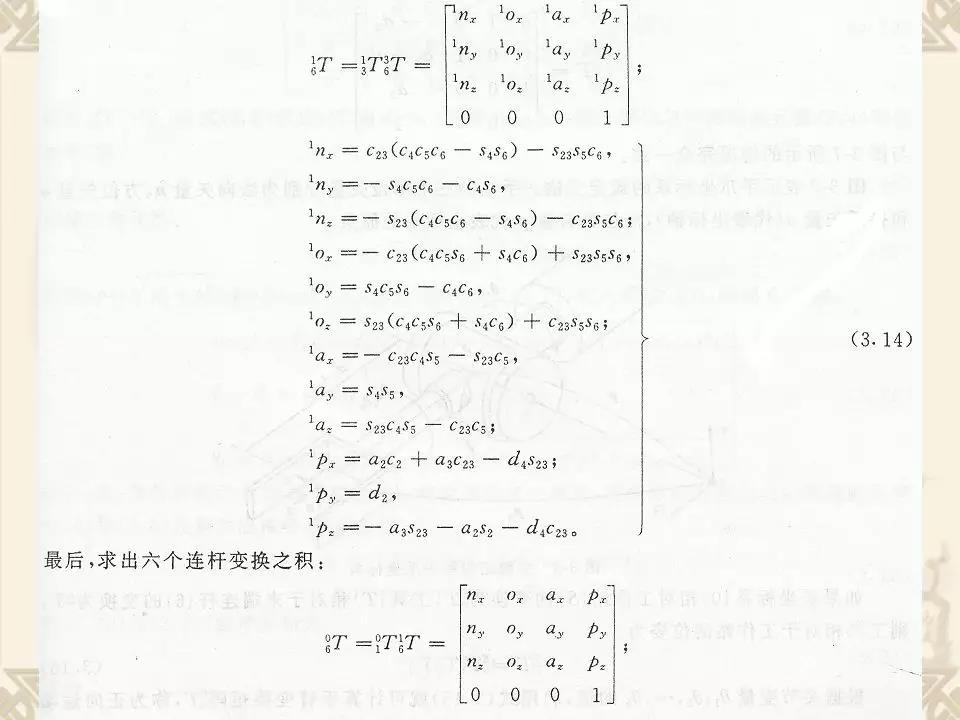 ¹₆T = ¹₃T³₆T = [¹nₓ ¹oₓ ¹aₓ ¹pₓ
¹n_y ¹o_y ¹a_y ¹p_y
¹n_z ¹o_z ¹a_z ¹p_z
0 0 0 1];
¹nₓ = c₂₃(c₄c₅c₆ − s₄s₆) − s₂₃s₅c₆,
¹n_y = − s₄c₅c₆ − c₄s₆,
¹n_z = − s₂₃(c₄c₅c₆ − s₄s₆) − c₂₃s₅c₆;
¹oₓ = − c₂₃(c₄c₅s₆ + s₄c₆) + s₂₃s₅s₆,
¹o_y = s₄c₅s₆ − c₄c₆,
¹o_z = s₂₃(c₄c₅s₆ + s₄c₆) + c₂₃s₅s₆;
(3.14)
¹aₓ = − c₂₃c₄s₅ − s₂₃c₅,
¹a_y = s₄s₅,
¹a_z = s₂₃c₄s₅ − c₂₃c₅;
¹pₓ = a₂c₂ + a₃c₂₃ − d₄s₂₃;
¹p_y = d₂,
¹p_z = − a₃s₂₃ − a₂s₂ − d₄c₂₃。
最后,求出六个连杆变换之积:
⁰₆T = ⁰₁T¹₆T = [nₓ oₓ aₓ pₓ
n_y o_y a_y p_y
n_z o_z a_z p_z
0 0 0 1];